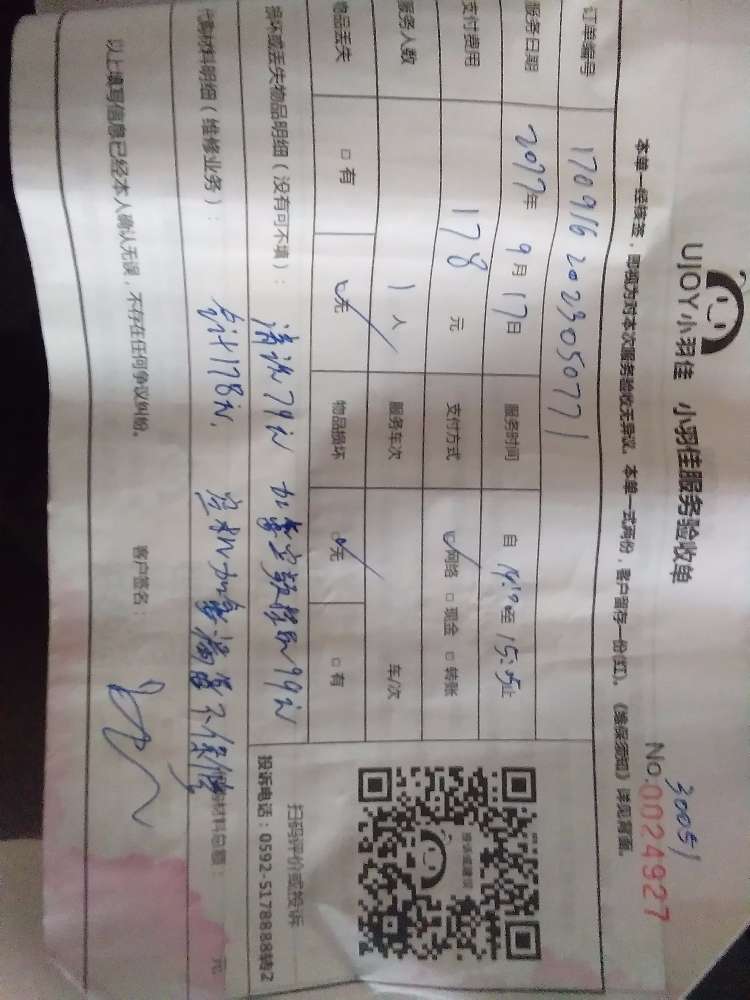 UJOY小羽佳 小羽佳服务验收单
30051
No:0024927
本单一经接签，即视为对本次服务验收无异议。本单一式两份，客户留存一份(红)。《维保须知》详见背面。
订单编号 170916202305071
服务日期 2017年9月17日 服务时间 自 至 15:05止
支付费用 178 元 支付方式 ☑网络 □现金 □转账
服务人数 1人 服务车次 车/次
物品丢失 □有 ☑无 物品损坏 ☑无 □有
损坏或丢失物品明细（没有可不填）： 清洗79元 加 99元
代购材料明细（维修业务）： 合计178元， 不保修 材料总额： 元
扫码评价或投诉
投诉电话：0592-5178888转2
投诉或建议
以上填写信息已经本人确认无误，不存在任何争议纠纷。 客户签名：